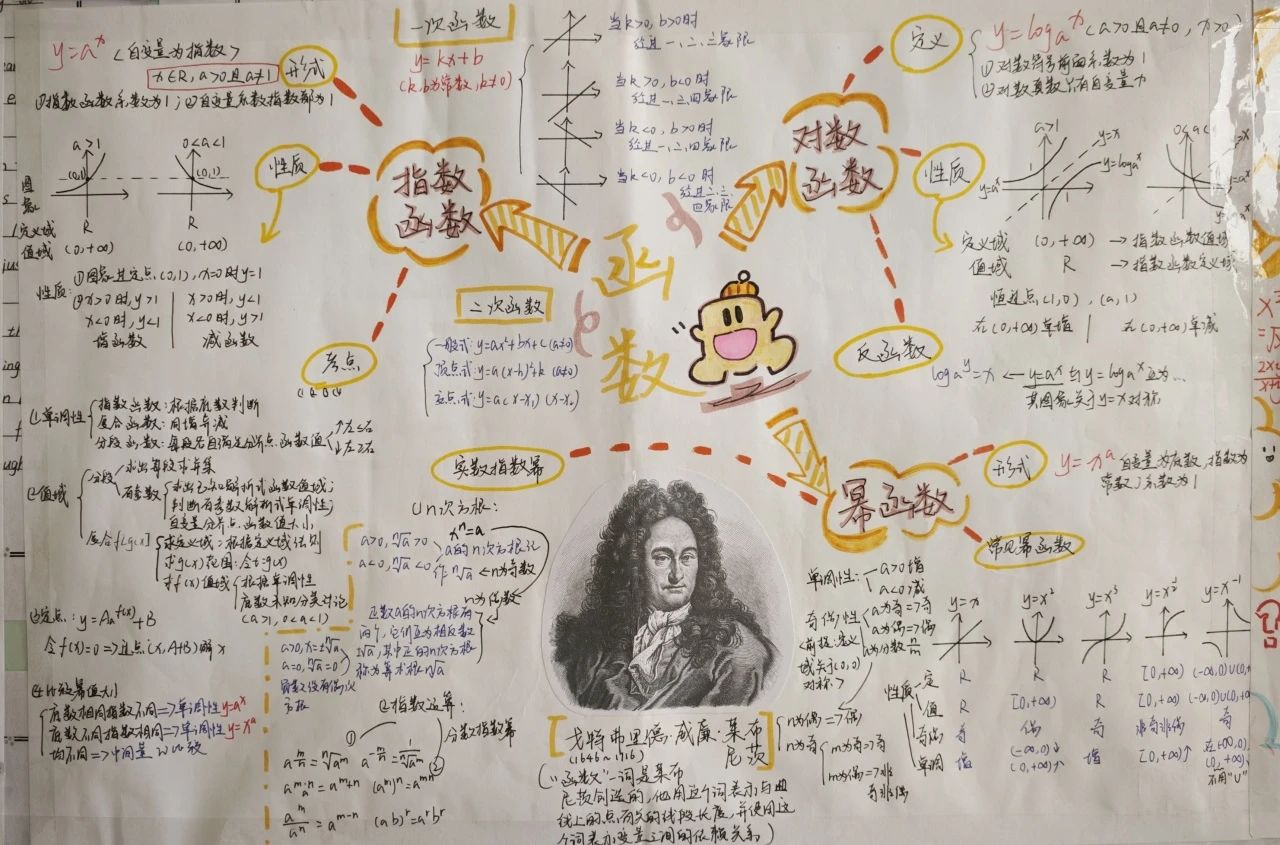 一次函数
y=kx+b
(k,b为常数,k≠0)
当k>0,b>0时
经过一、二、三象限
当k>0,b<0时
经过一、三、四象限
当k<0,b>0时
经过一、二、四象限
当k<0,b<0时
经过二、三、
四象限
函
数
二次函数
一般式:y=ax²+bx+c(a≠0)
顶点式:y=a(x-h)²+k (a≠0)
交点式:y=a(x-x₁)(x-x₂)
指数
函数
形式
y=aˣ <自变量为指数>
x∈R,a>0且a≠1
①指数函数系数为1;②自变量系数指数都为1
性质
a>1
0<a<1
(0,1)
(0,1)
图
象
定义域 R R
值域 (0,+∞) (0,+∞)
性质:
①图象过定点(0,1),x=0时y=1
②x>0时,y>1 x>0时,y<1
x<0时,y<1 x<0时,y>1
增函数 减函数
考点
(1)单调性
指数函数:根据底数判断
复合函数:同增异减
分段函数:每段各自满足分界点函数值
②值域
分段
求出每段求并集
有参数
求出已知解析式函数值域;
判断有参数解析式单调性;
自变量分界点函数值大小
复合f[g(x)]
求定义域:根据定义域法则
求g(x)范围:令t=g(x)
求f(x)值域
根据单调性
底数未知分类讨论
(a>1,0<a<1)
③定点:y=Aa^f(x)+B
令f(x)=0=>过点(x,A+B)解x
④比较幂值大小
底数相同指数不同=>单调性y=aˣ
底数不同指数相同=>单调性y=xᵃ
均不同=>中间量"1"比较
对数
函数
定义
y=logₐx (a>0且a≠0,x>0)
①对数符号前面系数为1
②对数真数只有自变量
性质
a>1
y=x
y=logₐx
y=aˣ
定义域 (0,+∞) →指数函数值域
值域 R →指数函数定义域
恒过点(1,0),(a,1)
在(0,+∞)单增 在(0,+∞)单减
反函数
logaʸ=x ← y=aˣ与y=logₐx互为...
其图象关于y=x对称
幂函数
形式
y=xᵃ
自变量为底数,指数为
常数;系数为1
常见幂函数
单调性:
a>0增
a<0减
奇偶性
(前提:定义
域关于(0,0)
对称)
a为奇=>奇
a为偶=>偶
a为分数n/m
n为偶=>偶
n为奇
m为奇=>奇
m为偶=>非
奇非偶
y=x y=x² y=x³ y=x^½ y=x⁻¹
性质
定 R R R [0,+∞) (-∞,0)∪(0,
值 R [0,+∞) R [0,+∞) (-∞,0)∪(0,+∞
奇偶 奇 偶 奇 非奇非偶 奇
单调 增 (-∞,0)↓ 增 [0,+∞)↑
(0,+∞)↑
不用"∪"
实数指数幂
(1)n次方根:
xⁿ=a
a的n次方根记
作ⁿ√a ←n为奇数
a>0,ⁿ√a>0
a<0,ⁿ√a<0
n为偶数
正数a的n次方根有
两个,它们互为相反数
±ⁿ√a,其中正的n次方根
称为算术根ⁿ√a
a>0,x=±ⁿ√a
a=0,ⁿ√a=0
负数没有偶次
方根
②指数运算:
分数指数幂
a^(m/n)=ⁿ√aᵐ a^(-m/n)=1/ⁿ√aᵐ
aᵐaⁿ=aᵐ⁺ⁿ (aᵐ)ⁿ=aᵐⁿ
aᵐ/aⁿ=aᵐ⁻ⁿ (ab)ʳ=aʳbʳ
戈特弗里德·威廉·莱布
尼茨
(1646~1716)
("函数"一词是莱布
尼茨创造的,他用这个词表示与曲
线上的点有关的线段长度,并使用这
个词表示变量之间的依赖关系)